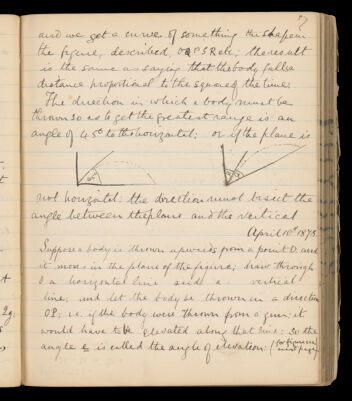 and we get a curve of something the shape in
the figure, described, OQPSR etc; the result
is the same as saying that the body falls a
distance proportional to the square of the time.
The direction in which a body must be
thrown so as to get the greatest range is an
angle of 45° to the horizontal; or if the plane is
not horizontal: the direction must bisect the
angle between the plane and the vertical
April 10th 1875.
Suppose a body is thrown upwards from a point O. and
it moves in the plane of the figure; draw through
O a horizontal line and a vertical
line, and let the body be thrown in a direction
OP; i.e. if the body were thrown from a gun: it
would have to be elevated along that line: so the
angle is called the angle of elevation: (for figure see next page)